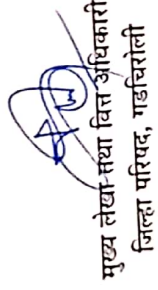 मुख्य लेखा तथा वित्त अधिकारी
जिल्हा परिषद, गडचिरोली